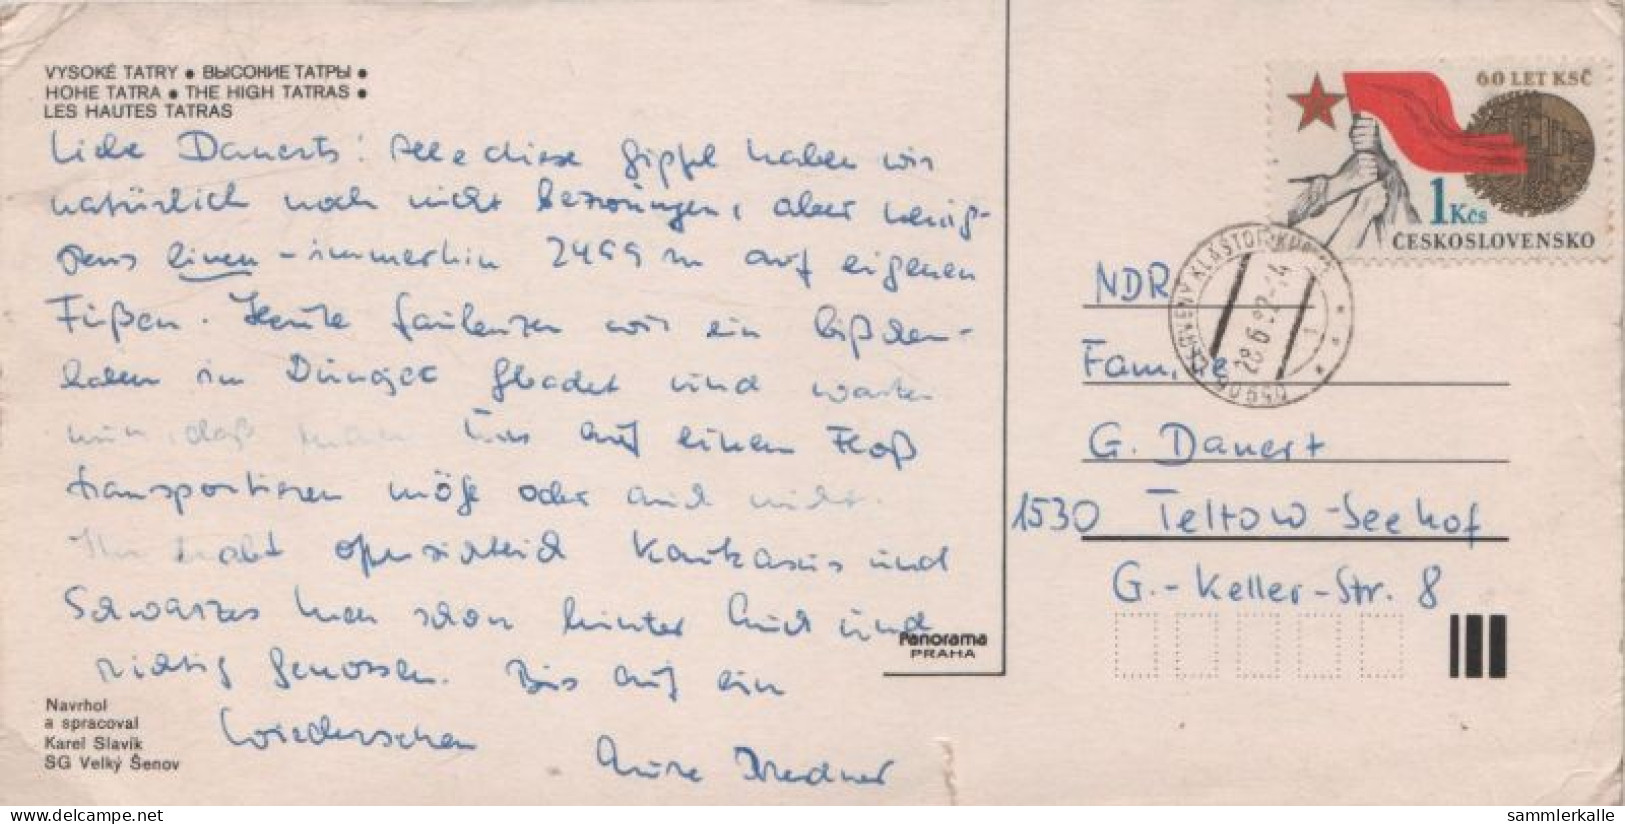 VYSOKÉ TATRY • ВЫСОКИЕ ТАТРЫ •
HOHE TATRA • THE HIGH TATRAS •
LES HAUTES TATRAS
Liebe Dauerts! Alle diese Gipfel haben wir
natürlich noch nicht bezwungen, aber wenig-
stens einen - immerhin 2499 m auf eigenen
Füßen. Heute faulenzen wir ein bißchen -
haben im Dunajec gebadet und warten
nun, daß man uns auf einem Floß
transportieren möge oder auch nicht.
Ihr habt offensichtlich Kaukasus und
Schwarzes Meer schon hinter Euch und
richtig genossen. Bis auf ein
Wiedersehen
Navrhol
a spracoval
Karel Slavík
SG Velký Šenov
Panorama
PRAHA
60 LET KSČ
1 Kčs
ČESKOSLOVENSKO
ČERVENÝ KLÁŠTOR
28.6.82-14
1
NDR
Familie
G. Dauert
1530 Teltow-Seehof
G.-Keller-Str. 8
sammlerkalle